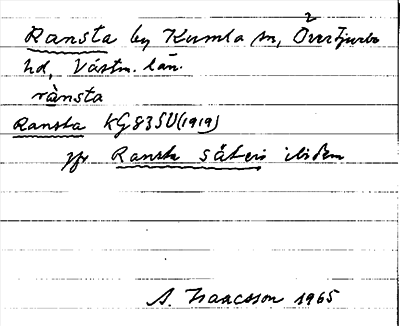 Ransta by Kumla sn, Övertjurbo
hd, Västm. län.
rànsta
Ransta KG83SV(1919)
jfr Ransta säteri ibidem
A. Isaacsson 1965